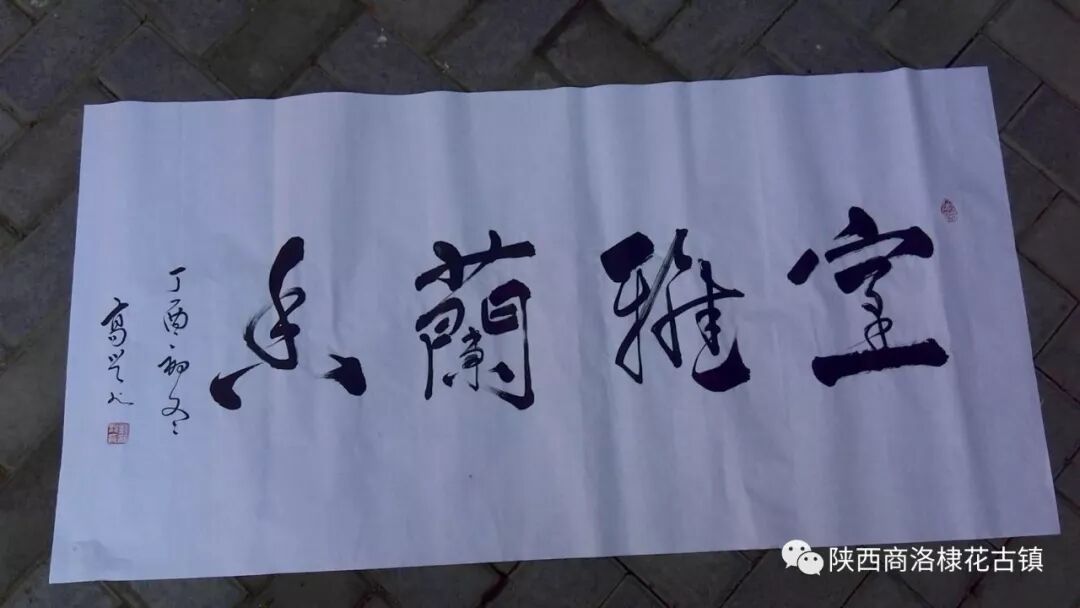 室雅蘭香
丁酉初冬
高兴
陕西商洛棣花古镇